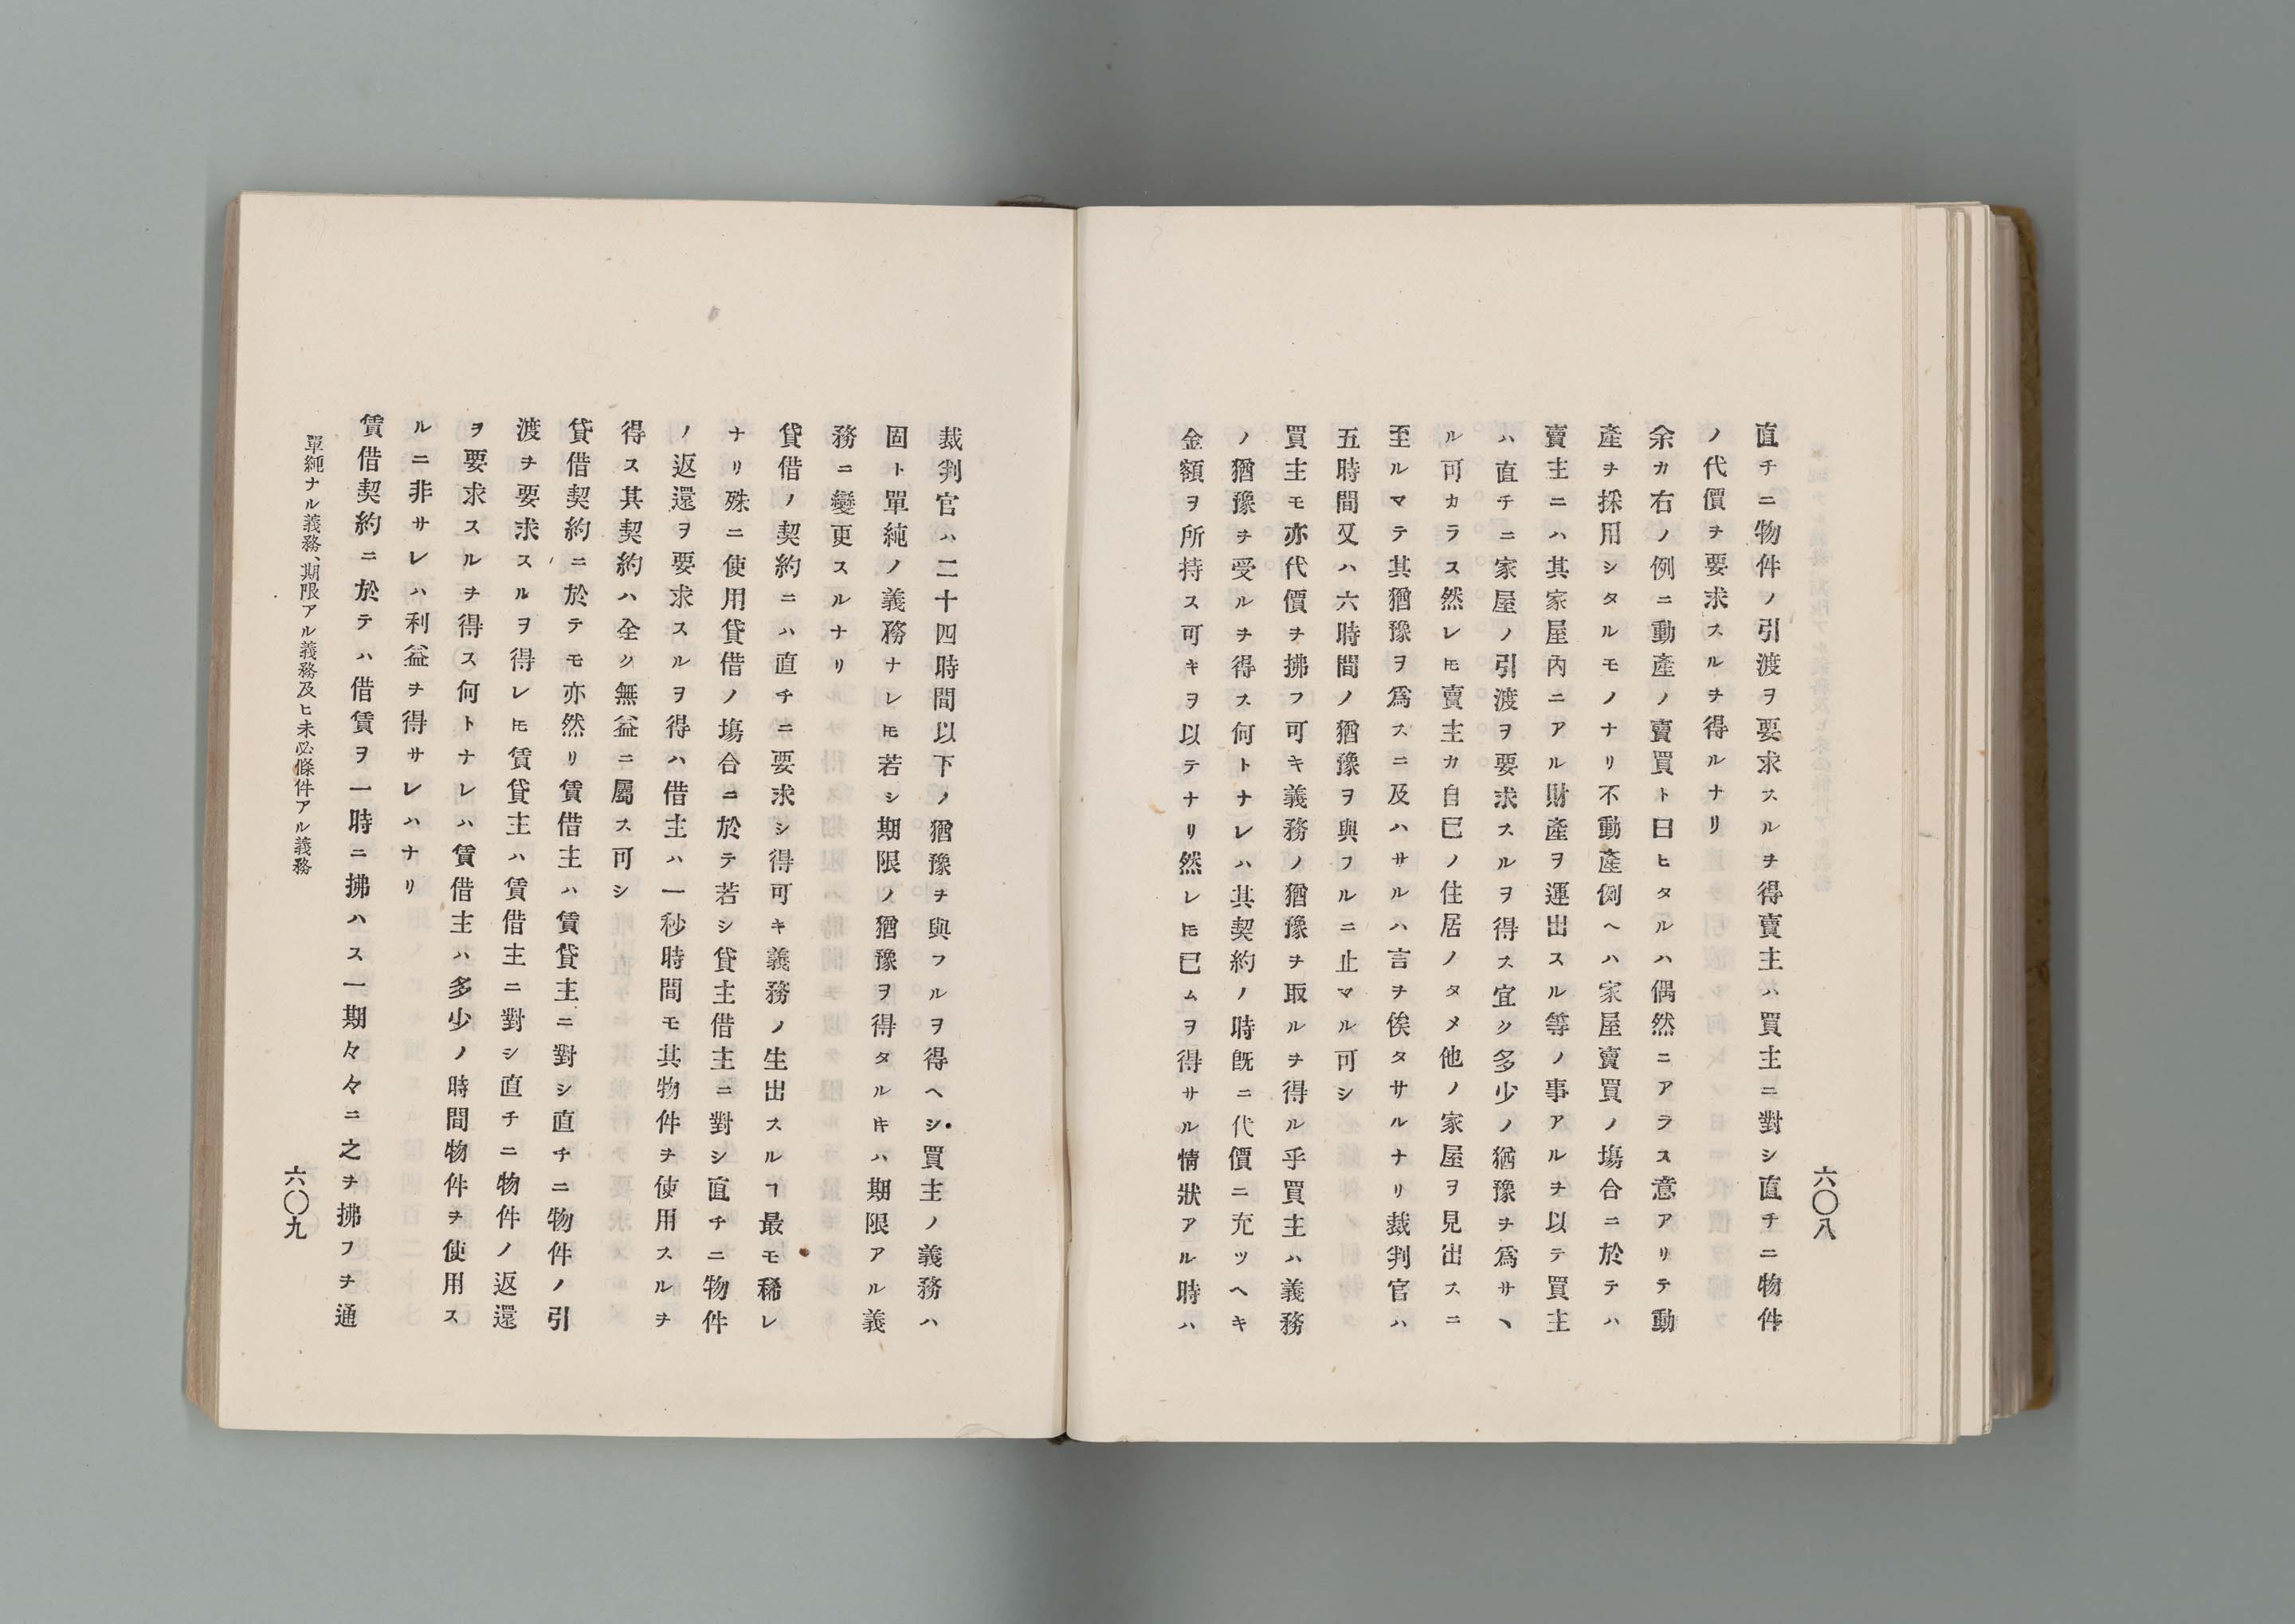 六〇八
直チニ物件ノ引渡ヲ要求スルヲ得賣主ハ買主ニ對シ直チニ物件
ノ代價ヲ要求スルヲ得ルナリ
余カ右ノ例ニ動產ノ賣買ト曰ヒタルハ偶然ニアラス意アリテ動
產ヲ採用シタルモノナリ不動產例ヘハ家屋賣買ノ塲合ニ於テハ
賣主ニハ其家屋內ニアル財產ヲ運出スル等ノ事アルヲ以テ買主
ハ直チニ家屋ノ引渡ヲ要求スルヲ得ス宜シク多少ノ猶豫ヲ爲サヽ
ル可カラス然レ𪜈賣主カ自己ノ住居ノタメ他ノ家屋ヲ見出スニ
至ルマテ其猶豫ヲ爲スニ及ハサルハ言ヲ俟タサルナリ裁判官ハ
五時間又ハ六時間ノ猶豫ヲ與フルニ止マル可シ
買主モ亦代價ヲ拂フ可キ義務ノ猶豫ヲ取ルヲ得ル乎買主ハ義務
ノ猶豫ヲ受ルヲ得ス何トナレハ其契約ノ時既ニ代價ニ充ツヘキ
金額ヲ所持ス可キヲ以テナリ然レ𪜈已ムヲ得サル情狀アル時ハ
裁判官ハ二十四時間以下ノ猶豫ヲ與フルヲ得ヘシ買主ノ義務ハ
固ト單純ノ義務ナレ𪜈若シ期限ノ猶豫ヲ得タルキハ期限アル義
務ニ變更スルナリ
貸借ノ契約ニハ直チニ要求シ得可キ義務ノ生出スルヿ最モ稀レ
ナリ殊ニ使用貸借ノ塲合ニ於テ若シ貸主借主ニ對シ直チニ物件
ノ返還ヲ要求スルヲ得ハ借主ハ一秒時間モ其物件ヲ使用スルヲ
得ス其契約ハ全ク無益ニ屬ス可シ
貸借契約ニ於テモ亦然リ賃借主ハ賃貸主ニ對シ直チニ物件ノ引
渡ヲ要求スルヲ得レ𪜈賃貸主ハ賃借主ニ對シ直チニ物件ノ返還
ヲ要求スルヲ得ス何トナレハ賃借主ハ多少ノ時間物件ヲ使用ス
ルニ非サレハ利益ヲ得サレハナリ
賃借契約ニ於テハ借賃ヲ一時ニ拂ハス一期々々ニ之ヲ拂フヲ通
單純ナル義務、期限アル義務及ヒ未必條件アル義務
六〇九